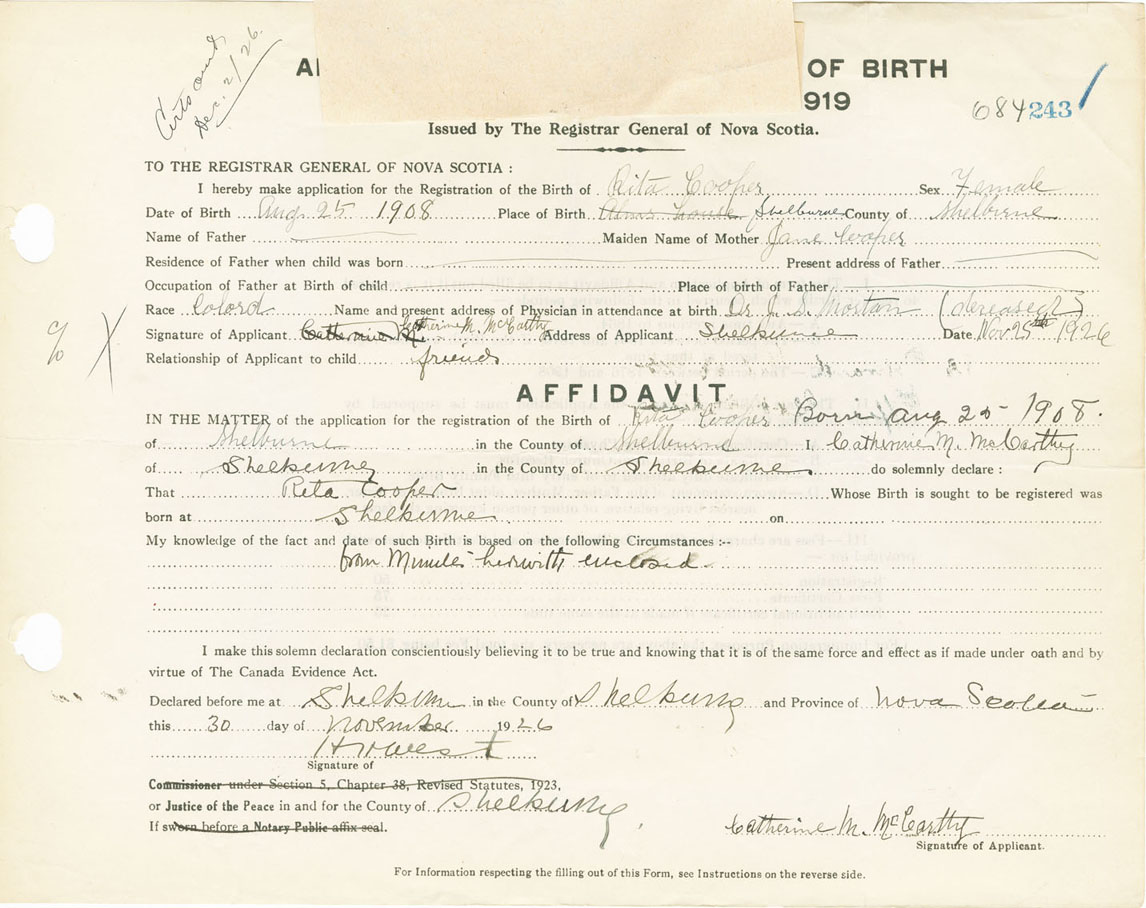 Dec. 2/26.
OF BIRTH
919
684 243
Issued by The Registrar General of Nova Scotia.
TO THE REGISTRAR GENERAL OF NOVA SCOTIA :
I hereby make application for the Registration of the Birth of Rita Cooper Sex Female
Date of Birth Aug 25 1908 Place of Birth Alms house Shelburne County of Shelburne
Name of Father Maiden Name of Mother Jane Cooper
Residence of Father when child was born Present address of Father
Occupation of Father at Birth of child Place of birth of Father
Race Colord Name and present address of Physician in attendance at birth Dr. J. S. Morton (deceased)
Signature of Applicant Catherine Catherine M. McCarthy Address of Applicant Shelburne Date Nov 25th 1926
Relationship of Applicant to child friends
AFFIDAVIT
IN THE MATTER of the application for the registration of the Birth of Rita Cooper Born Aug 25 1908.
of Shelburne in the County of Shelburne I, Catherine M. McCarthy
of Shelburne in the County of Shelburne do solemnly declare :
That Rita Cooper Whose Birth is sought to be registered was
born at Shelburne on
My knowledge of the fact and date of such Birth is based on the following Circumstances :--
from Minutes herwith enclosed
I make this solemn declaration conscientiously believing it to be true and knowing that it is of the same force and effect as if made under oath and by
virtue of The Canada Evidence Act.
Declared before me at Shelburne in the County of Shelburne and Province of Nova Scotia
this 30 day of November 1926
Signature of
Commissioner under Section 5, Chapter 38, Revised Statutes, 1923,
or Justice of the Peace in and for the County of Shelburne
If sworn before a Notary Public affix seal.
Catherine M. McCarthy
Signature of Applicant.
For Information respecting the filling out of this Form, see Instructions on the reverse side.